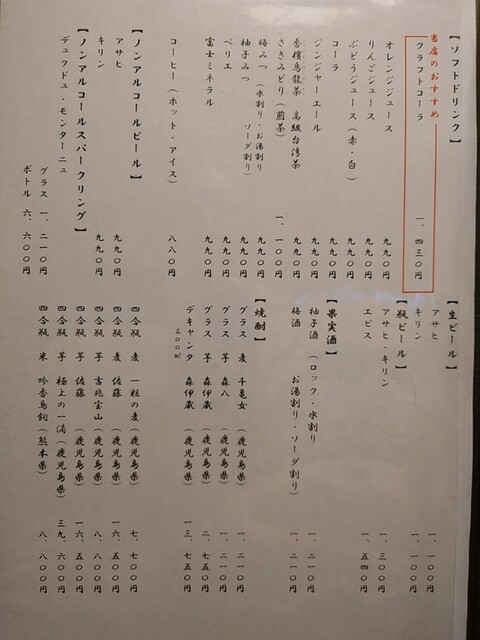 【ソフトドリンク】
当店のおすすめ
クラフトコーラ 一、四三〇円
オレンジジュース 九九〇円
りんごジュース 九九〇円
ぶどうジュース（赤・白） 九九〇円
コーラ 九九〇円
ジンジャーエール 九九〇円
香檳烏龍茶 高級台湾茶 九九〇円
さきみどり（煎茶） 一、一〇〇円
梅みつ（水割り・お湯割り 九九〇円
柚子みつ ソーダ割り） 九九〇円
ペリエ 九九〇円
富士ミネラル 九九〇円
コーヒー（ホット・アイス） 八八〇円
【ノンアルコールビール】
アサヒ 九九〇円
キリン 九九〇円
【ノンアルコールスパークリング】
デュクドゥ・モンターニュ
グラス 一、二一〇円
ボトル 六、六〇〇円
【生ビール】
アサヒ 一、一〇〇円
キリン 一、一〇〇円
【瓶ビール】
アサヒ・キリン 一、三〇〇円
エビス 一、五四〇円
【果実酒】
柚子酒（ロック・水割り 一、二一〇円
梅酒 お湯割り・ソーダ割り） 一、二一〇円
【焼酎】
グラス 麦 千亀女（鹿児島県） 一、二一〇円
グラス 芋 森八（鹿児島県） 一、二一〇円
グラス 芋 森伊蔵（鹿児島県） 二、七五〇円
デキャンタ 三〇〇㎖ 芋 森伊蔵（鹿児島県） 一三、七五〇円
四合瓶 麦 一粒の麦（鹿児島県） 七、七〇〇円
四合瓶 麦 佐藤（鹿児島県） 一六、五〇〇円
四合瓶 芋 吉兆宝山（鹿児島県） 八、八〇〇円
四合瓶 芋 佐藤（鹿児島県） 一六、五〇〇円
四合瓶 芋 極上の一滴（鹿児島県） 三九、六〇〇円
四合瓶 米 吟香鳥飼（熊本県） 八、八〇〇円